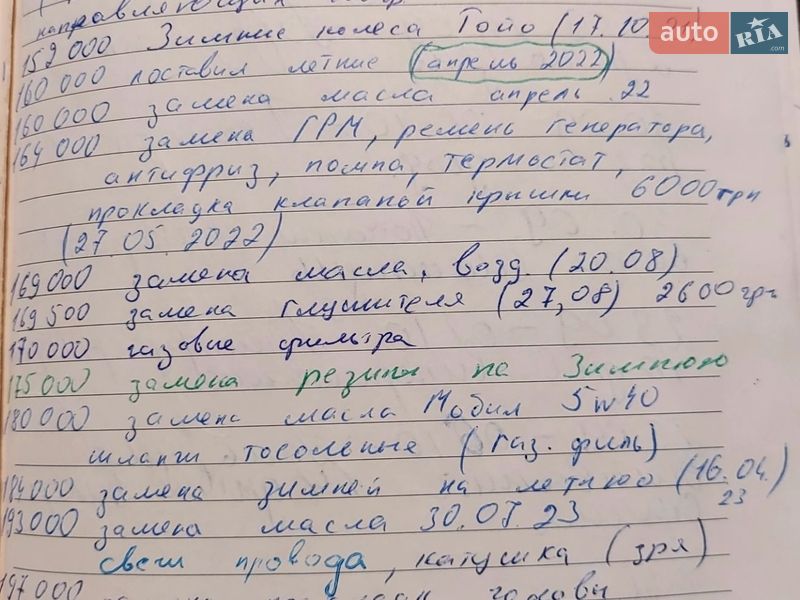 направляющих
159 000 Зимние колеса Тойо (17.10.21)
160 000 поставил летние (апрель 2022)
160 000 замена масла апрель 22
164 000 замена ГРМ, ремень генератора,
антифриз, помпа, термостат,
прокладка клапаной крышки 6000 грн
(27.05.2022)
169 000 замена масла, возд. (20.08)
169 500 замена глушителя (27,08) 2600 грн
170 000 газовые фильтра
175 000 замена резины на Зимнюю
180 000 замена масла Мобил 5w40
шланги тосоленые (газ. филь)
184 000 замена зимней на летнюю (16.04.23)
193 000 замена масла 30.07.23
свечи провода, катушка (зря)
197 000 головы
auto RIA.com